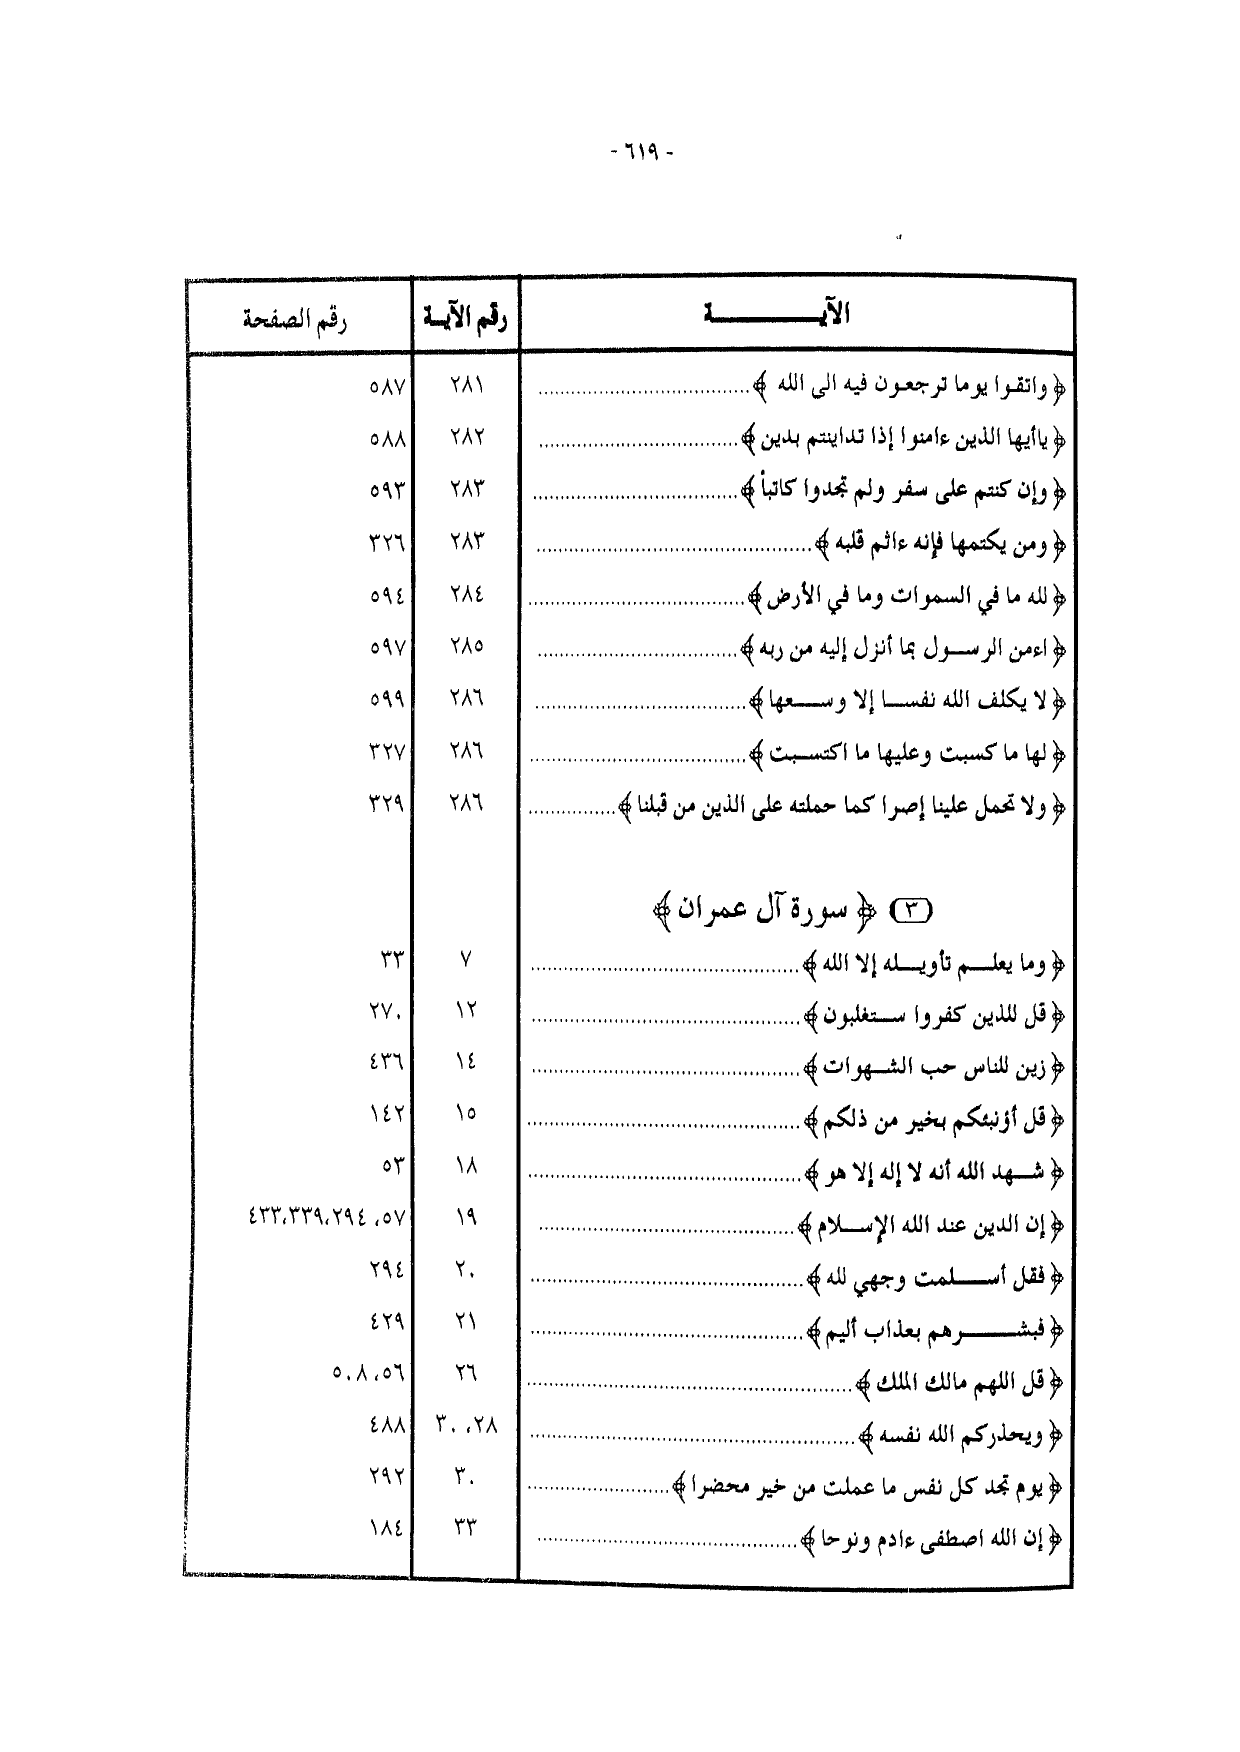 - ٦١٩ -
الآيـــــــة رقم الآيـة رقم الصفحة
﴿ واتقوا يوما ترجعون فيه الى الله ﴾ ........ ٢٨١ ٥٨٧
﴿ ياأيها الذين ءامنوا إذا تداينتم بدين ﴾ ........ ٢٨٢ ٥٨٨
﴿ وإن كنتم على سفر ولم تجدوا كاتبأ ﴾ ........ ٢٨٣ ٥٩٣
﴿ ومن يكتمها فإنه ءاثم قلبه ﴾ ........ ٢٨٣ ٣٢٦
﴿ لله ما في السموات وما في الأرض ﴾ ........ ٢٨٤ ٥٩٤
﴿ اءمن الرســول بما أنزل إليه من ربه ﴾ ........ ٢٨٥ ٥٩٧
﴿ لا يكلف الله نفســا إلا وســعها ﴾ ........ ٢٨٦ ٥٩٩
﴿ لها ما كسبت وعليها ما اكتســبت ﴾ ........ ٢٨٦ ٣٢٧
﴿ ولا تحمل علينا إصرا كما حملته على الذين من قبلنا ﴾ ........ ٢٨٦ ٣٢٩
(٣) ﴿ سورة آل عمران ﴾
﴿ وما يعلــم تأويــله إلا الله ﴾ ........ ٧ ٣٣
﴿ قل للذين كفروا ســتغلبون ﴾ ........ ١٢ ٢٧٠
﴿ زين للناس حب الشــهوات ﴾ ........ ١٤ ٤٣٦
﴿ قل أؤنبئكم بخير من ذلكم ﴾ ........ ١٥ ١٤٢
﴿ شــهد الله أنه لا إله إلا هو ﴾ ........ ١٨ ٥٣
﴿ إن الدين عند الله الإســلام ﴾ ........ ١٩ ٥٧، ٢٩٤،٣٣٩،٤٣٣
﴿ فقل أســـلمت وجهي لله ﴾ ........ ٢٠ ٢٩٤
﴿ فبشـــرهم بعذاب أليم ﴾ ........ ٢١ ٤٢٩
﴿ قل اللهم مالك الملك ﴾ ........ ٢٦ ٥٦، ٥٠٨
﴿ ويحذركم الله نفسه ﴾ ........ ٢٨، ٣٠ ٤٨٨
﴿ يوم تجد كل نفس ما عملت من خير محضرا ﴾ ........ ٣٠ ٢٩٢
﴿ إن الله اصطفى ءادم ونوحا ﴾ ........ ٣٣ ١٨٤